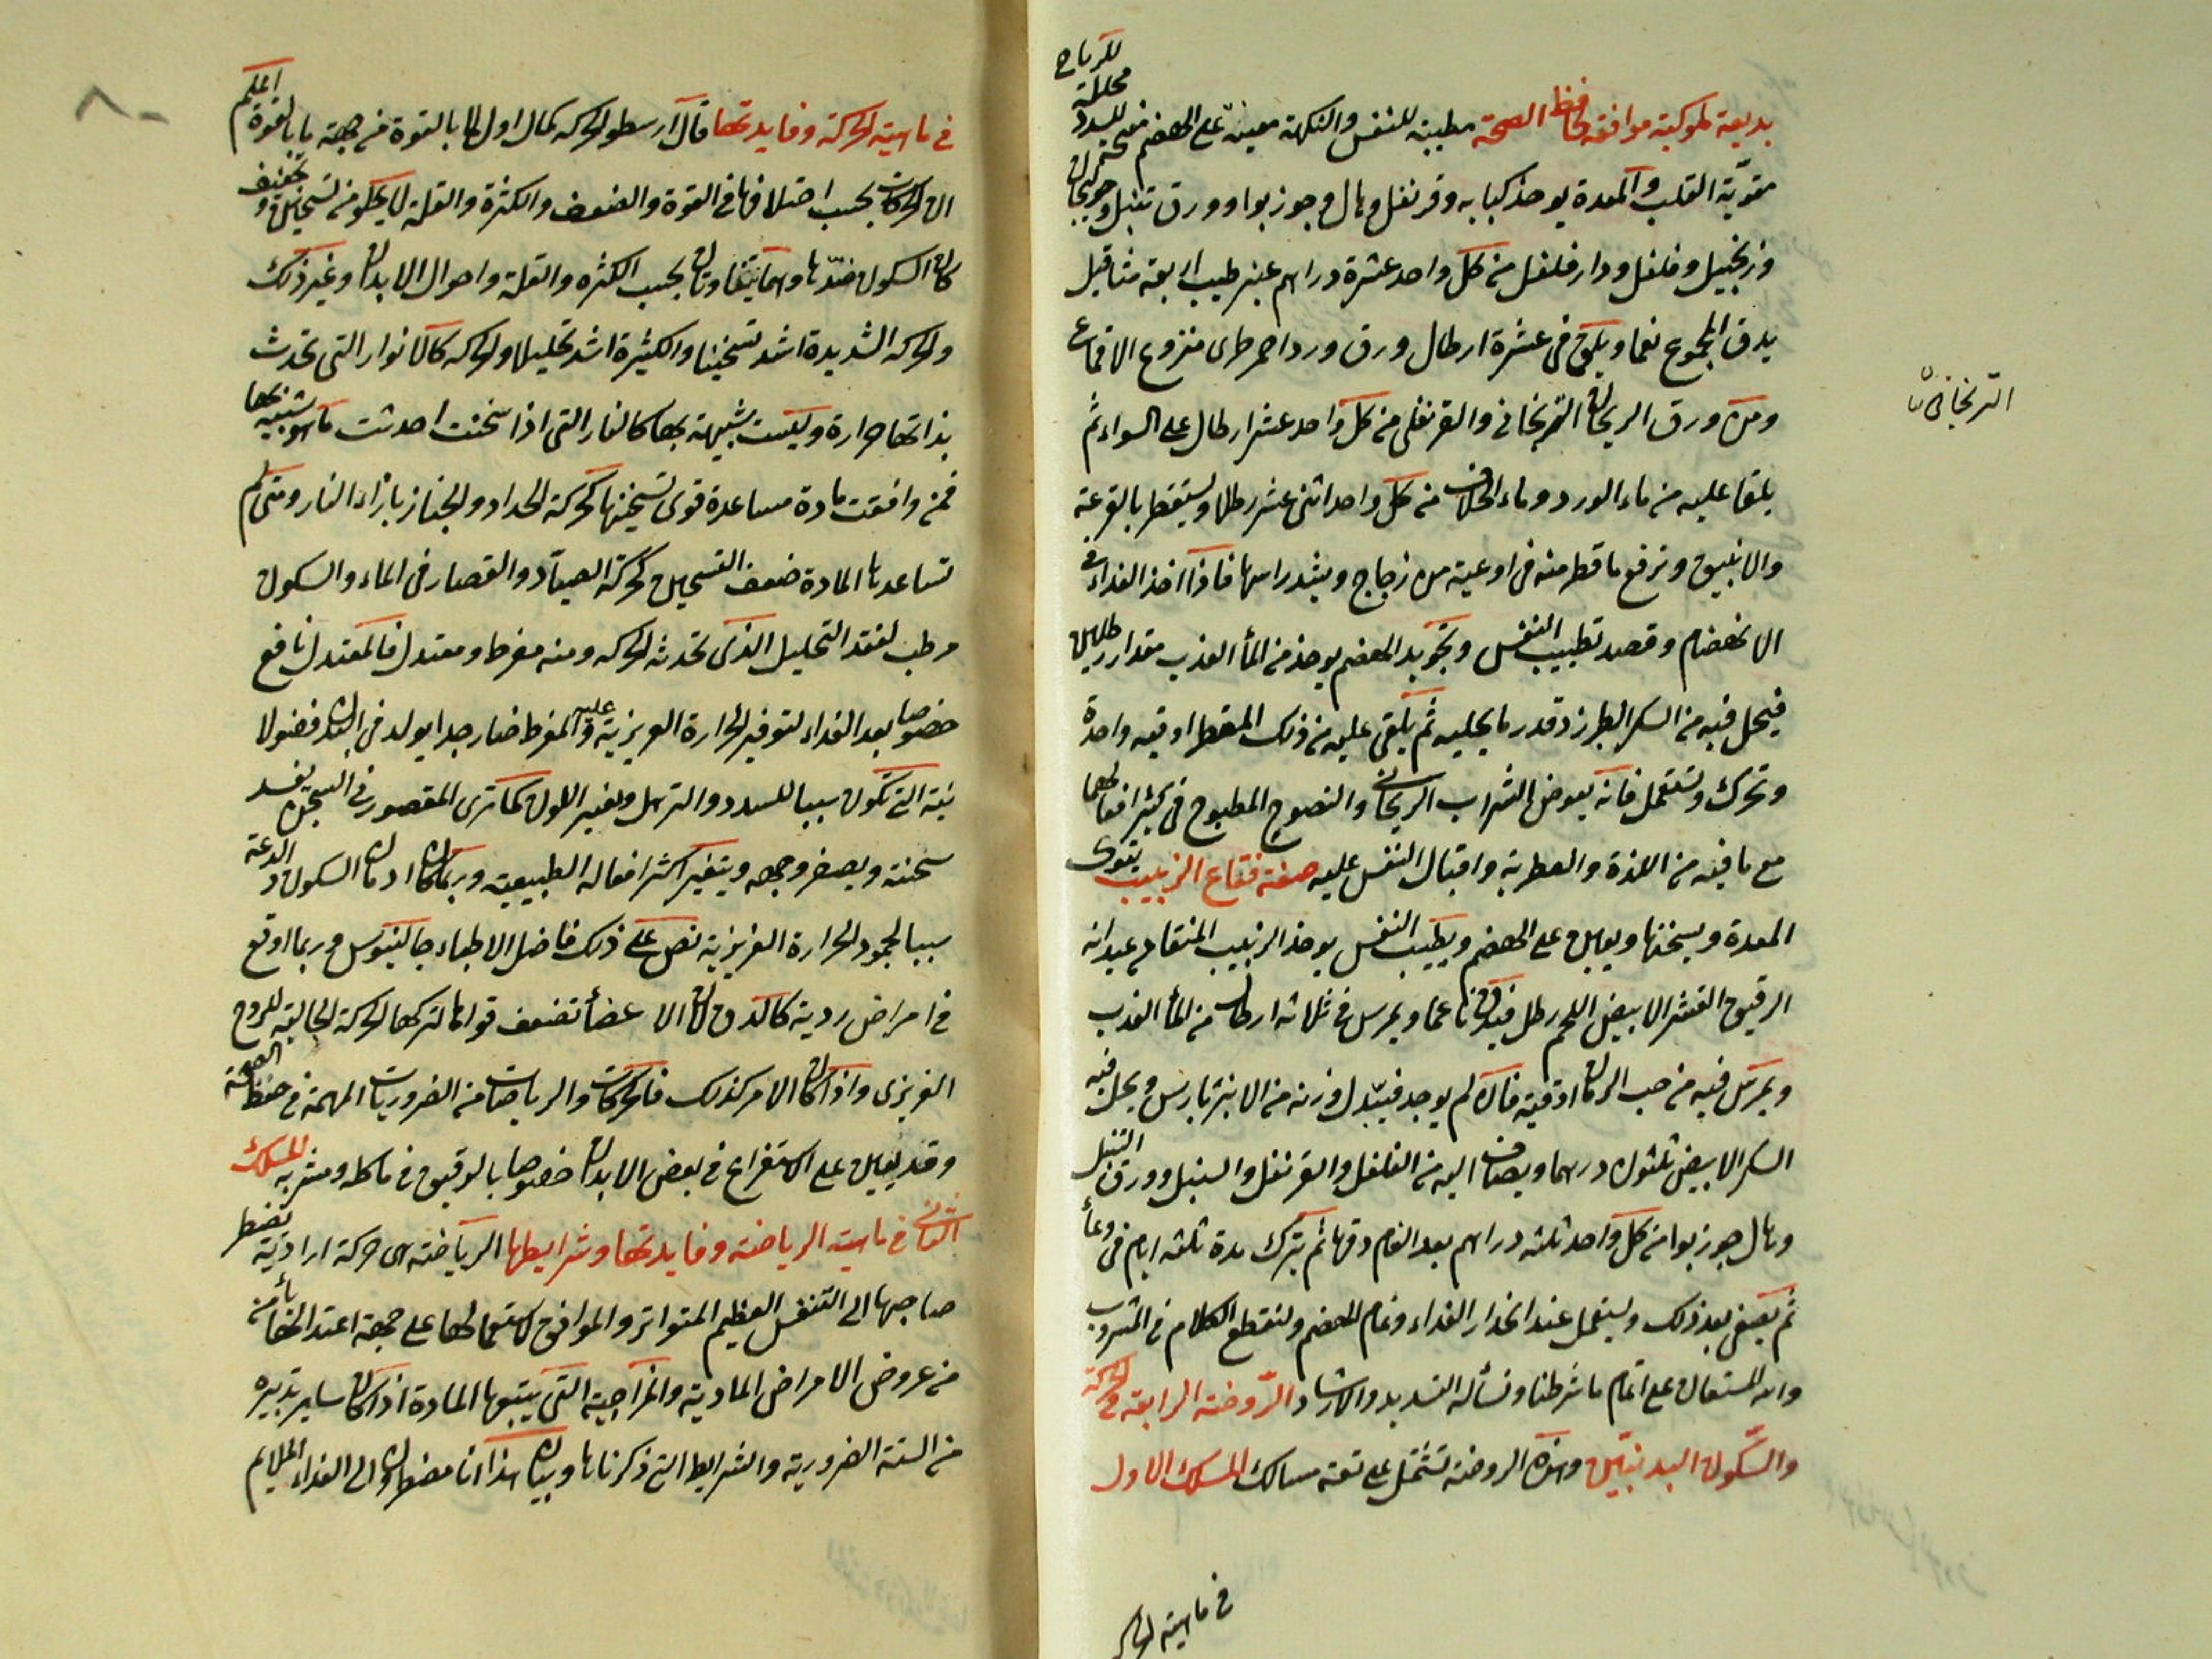 بديعة ملوكية موافقة لحافظ الصحة مطيبة للنفس والنكهة معينة على الهضم مفتحة للسدد محللة للرياح
مقوية القلب والمعدة يوخذ كبابه وقرنفل وهال وجوز بوا وورق تنبل وخولنجان
وزنجبيل وفلفل ودار فلفل من كل واحد عشرة دراهم عنبر طيب اربعة مثاقيل
يدق المجموع نعما ويلقى فى عشرة ارطال ورق ورد احمر طرى منزوع الاقماع
ومن ورق الريحان الترنجانى والقرنفلى من كل واحد عشر ارطال على السواء ثم
يلقا عليه من ماء الورد وماء الخلاف من كل واحد اثنى عشر رطلا ويستقطر بالقرعة
والانبيق وترفع ما قطر منه فى اوعية من زجاج ويشد راسها فاذا اخذ الغداء فى
الانهضام وقصد تطييب النفس وتجويد الهضم يوخذ من المأ العذب مقدار رطلين
فيحل فيه من السكر الطبرزد قدر ما يحليه ثم يلقى عليه من ذلك المقطر اوقيه واحدة
وتحرك وتستعمل فانه يعوض الشراب الريحانى والنصوح المطبوخ فى كثير افعالهما
مع ما فيه من اللذة والعطرية واقبال النفس عليه صفة فقاع الزبيب يقوى
المعدة ويسخنها ويعين على الهضم ويطيب النفس يوخذ الزبيب المنقا من عيدانه
الرقيق القشر الابيض اللحم رطل فيدق ناعما ويمرس فى ثلاثه ارطال من المأ العذب
ويمرس فيه من حب الرمان اوقية فان لم يوجد فيبدل وزنه من الانبرباريس ويحل فيه
السكر الابيض ثلثون درهما ويضاف اليه من الفلفل والقرنفل والسنبل وورق التنبل
وهال جوز بوا من كل واحد ثلثه دراهم بعد انعام دقها ثم يترك مدة ثلثه ايام فى وعأ
ثم يصفى بعد ذلك ويستعمل عند انحدار الغداء وتمام الهضم ولنقطع الكلام فى المشروب
والله المستعان على اتمام ما شرطنا ونسأله التسديد والارشاد الروضة الرابعة فى الحركة
والسكون البدنيين وهذه الروضة تشتمل على تسعة مسالك المسلك الاول
فى ماهية الحركة
الترنجانى ن
فى ماهية الحركة وفايدتها قال ارسطو الحركه كمال اول لما بالقوة من جهة ما بالقوة اعلم
ان الحركات بحسب اختلافها فى القوة والضعف والكثرة والقلة لا يخلو من تسخين وتجفيف
كان السكون ضدها وهما يتفاوتان بحسب الكثره والقلة واحوال الابدان وغير ذلك
والحركه الشديدة اشد تسخينا والكثيرة اشد تحليلا والحركه كالانوار التى تحدث
بذاتها حرارة وليست شبيهة بها كالنار التى اذا سخنت احدثت ما هو شبيه بها
فمن وافقت مادة مساعدة قوى تسخينها كحركة الحداد والخباز بازاء النار ومتى لم
تساعدها المادة ضعف التسخين كحركة الصياد والقصار فى الماء والسكون
مرطب لفقد التحليل الذى تحدثه الحركه ومنه مفرط ومعتدل فالمعتدل نافع
خصوصا بعد الغداء لتوفير الحرارة الغريزية عليه والمفرط ضار جدا يولد فى البدن فضولا
نيئة التى تكون سببا للسدد والترهل وتغير اللون كما ترى المقصور فى السجن يفسد
سحنته ويصفر وجهه ويتغير اكثر افعاله الطبيعية وربما كان ادمان السكون والدعة
سببا لجمود الحرارة الغريزية نص على ذلك فاضل الاطباء جالينوس وربما اوقع
فى امراض ردية كالدق لان الاعضأ تضعف قواها لتركها الحركة الجالبة للروح
الغريزى واذا كان الامر كذلك فالحركات والرياضات من الضروريات المهمة فى حفظ الصحة
وقد يعين على الاستفراغ فى بعض الابدان خصوصا بالوقيق فى ماكله ومشربه المسلك
الثانى فى ماهية الرياضة وفايدتها وشرايطها الرياضة هى حركة ارادية تضطر
صاحبها الى التنفس العظيم المتواتر والموافق لاستعمالها على جهة اعتدالها يأمن
من عروض الامراض المادية والمزاجية التى يتبعها المادة اذا كان ساير تدبيره
من الستة الضرورية والشرايط التى ذكرناها وبيان هذا انا مضطرون الى الغداء الملايم